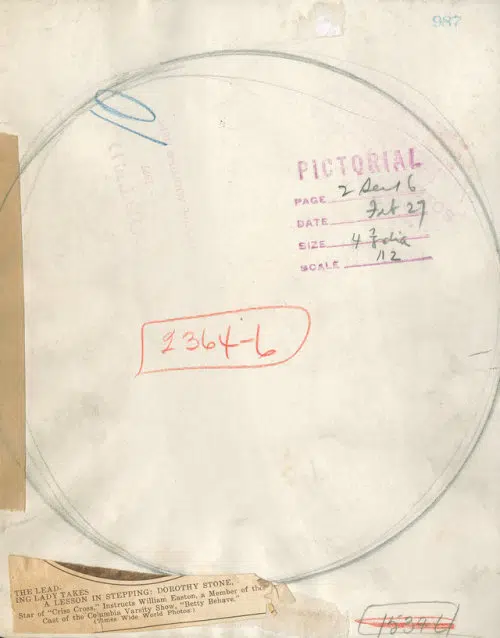 987
PICTORIAL
PAGE 2 Sec 6
DATE Feb 27
SIZE 4 7 dia
SCALE 112
2364-6
THE LEAD-
ING LADY TAKES
A LESSON IN STEPPING: DOROTHY STONE,
Star of "Criss Cross," Instructs William Easton, a Member of the
Cast of the Columbia Varsity Show, "Betty Behave."
(Times Wide World Photos.)